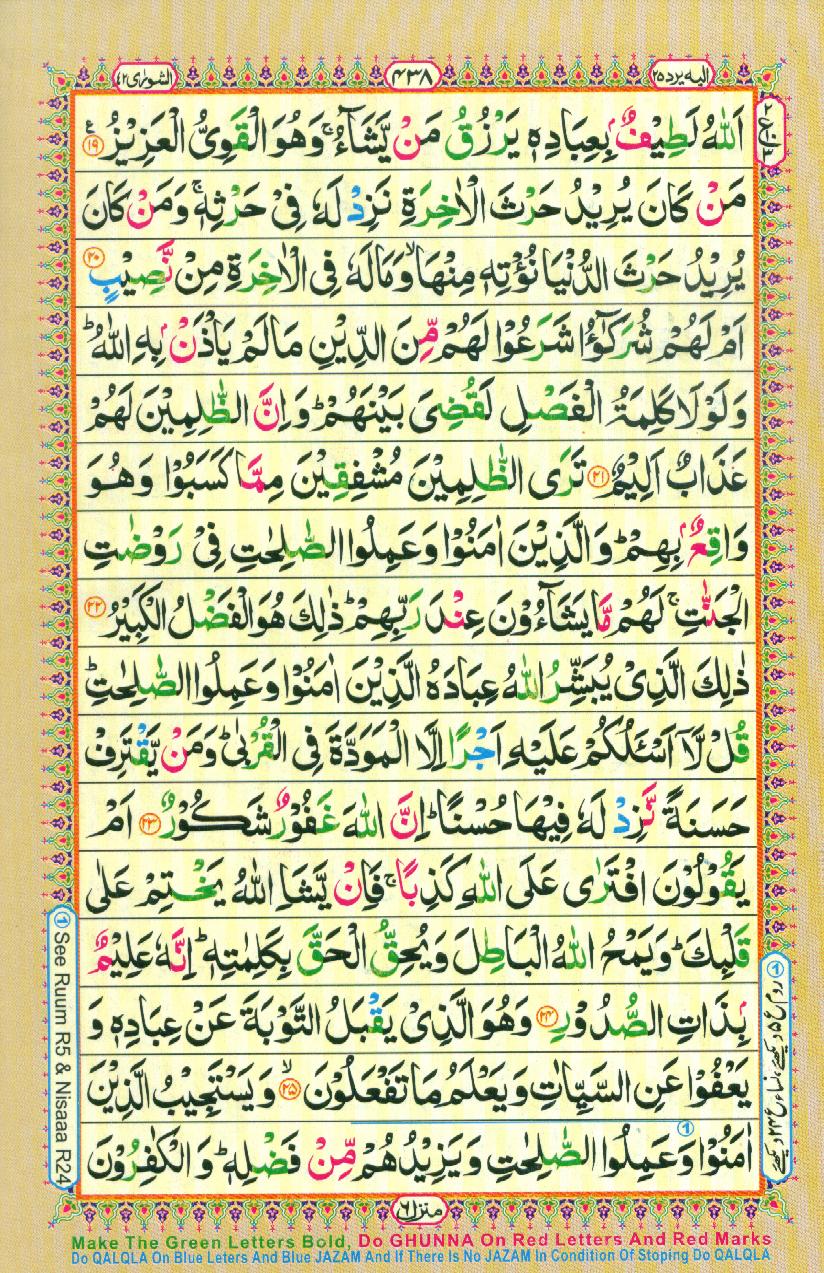 الیه یرد ۲۵
۴۳۸
الشوری ۴۲
اَللّٰهُ لَطِيْفٌۢ بِعِبَادِهٖ يَرْزُقُ مَنْ يَّشَآءُ ۚ وَهُوَ الْقَوِىُّ الْعَزِيْزُ ۱۹ ع
مَنْ كَانَ يُرِيْدُ حَرْثَ الْاٰخِرَةِ نَزِدْ لَهٗ فِىْ حَرْثِهٖ ۚ وَمَنْ كَانَ
يُرِيْدُ حَرْثَ الدُّنْيَا نُؤْتِهٖ مِنْهَا ۙ وَمَا لَهٗ فِى الْاٰخِرَةِ مِنْ نَّصِيْبٍ ۲۰
اَمْ لَهُمْ شُرَكٰٓؤُا شَرَعُوْا لَهُمْ مِّنَ الدِّيْنِ مَا لَمْ يَاْذَنْۢ بِهِ اللّٰهُ ؕ
وَلَوْلَا كَلِمَةُ الْفَصْلِ لَقُضِىَ بَيْنَهُمْ ؕ وَاِنَّ الظّٰلِمِيْنَ لَهُمْ
عَذَابٌ اَلِيْمٌ ۲۱ تَرَى الظّٰلِمِيْنَ مُشْفِقِيْنَ مِمَّا كَسَبُوْا وَهُوَ
وَاقِعٌۢ بِهِمْ ؕ وَالَّذِيْنَ اٰمَنُوْا وَعَمِلُوا الصّٰلِحٰتِ فِىْ رَوْضٰتِ
الْجَنّٰتِ ۚ لَهُمْ مَّا يَشَآءُوْنَ عِنْدَ رَبِّهِمْ ؕ ذٰلِكَ هُوَ الْفَضْلُ الْكَبِيْرُ ۲۲
ذٰلِكَ الَّذِىْ يُبَشِّرُ اللّٰهُ عِبَادَهُ الَّذِيْنَ اٰمَنُوْا وَعَمِلُوا الصّٰلِحٰتِ ؕ
قُلْ لَّاۤ اَسْـَٔلُكُمْ عَلَيْهِ اَجْرًا اِلَّا الْمَوَدَّةَ فِى الْقُرْبٰى ؕ وَمَنْ يَّقْتَرِفْ
حَسَنَةً نَّزِدْ لَهٗ فِيْهَا حُسْنًا ؕ اِنَّ اللّٰهَ غَفُوْرٌ شَكُوْرٌ ۲۳ اَمْ
يَقُوْلُوْنَ افْتَرٰى عَلَى اللّٰهِ كَذِبًا ۚ فَاِنْ يَّشَاِ اللّٰهُ يَخْتِمْ عَلٰى
قَلْبِكَ ؕ وَيَمْحُ اللّٰهُ الْبَاطِلَ وَيُحِقُّ الْحَقَّ بِكَلِمٰتِهٖ ؕ اِنَّهٗ عَلِيْمٌۢ
بِذَاتِ الصُّدُوْرِ ۲۴ وَهُوَ الَّذِىْ يَقْبَلُ التَّوْبَةَ عَنْ عِبَادِهٖ وَ
يَعْفُوْا عَنِ السَّيِّاٰتِ وَيَعْلَمُ مَا تَفْعَلُوْنَ ۲۵ ۙ وَيَسْتَجِيْبُ الَّذِيْنَ
اٰمَنُوْا وَعَمِلُوا الصّٰلِحٰتِ وَيَزِيْدُهُمْ مِّنْ فَضْلِهٖ ؕ وَالْكٰفِرُوْنَ
① See Ruum R5 & Nisaaa R24
منزل ۶
Make The Green Letters Bold, Do GHUNNA On Red Letters And Red Marks
Do QALQLA On Blue Leters And Blue JAZAM And If There Is No JAZAM In Condition Of Stoping Do QALQLA